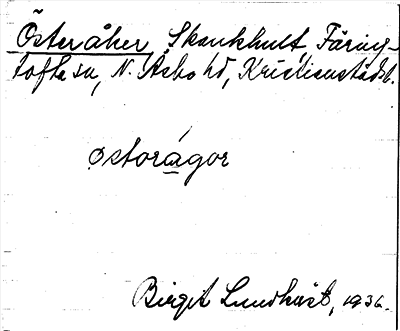 Österåker, Skånkhult, Färing-
tofta sn, N. Åsbo hd, Kristianstads l.
østorágor
Birgit Lundkvist, 1936.